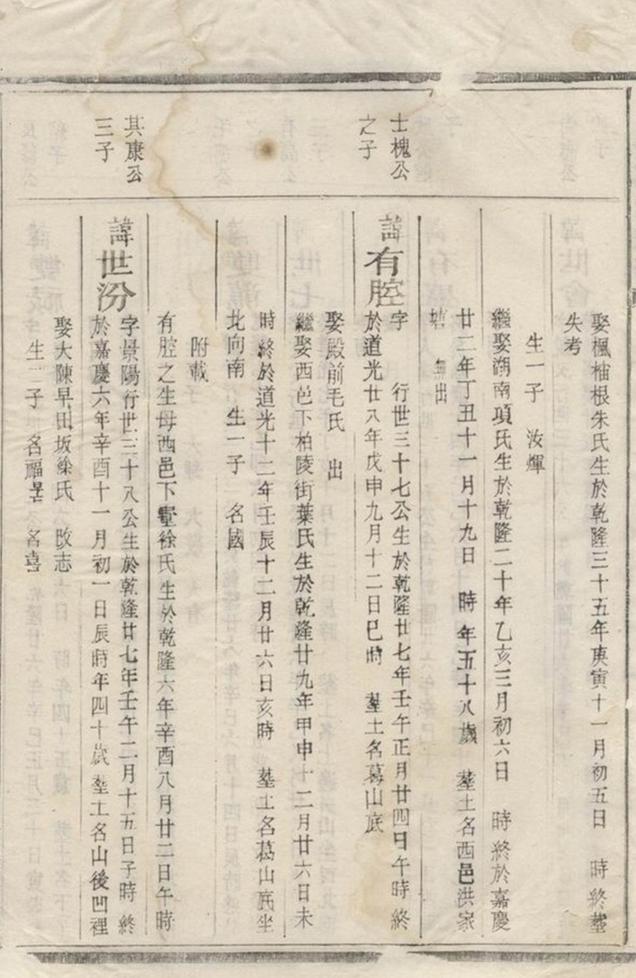 娶楓柚根朱氏生於乾隆三十五年庚寅十一月初五日 時終塟
失考
生一子 汝煇
繼娶湖南項氏生於乾隆二十年乙亥三月初六日 時終於嘉慶
廿二年丁丑十一月十九日 時年五十八歲 塟土名西邑洪家
塘 無出
士槐公
之子
諱有腔
字 行世三十七公生於乾隆廿七年壬午正月廿四日午時終
於道光廿八年戊申九月十二日巳時 塟土名葛山底
娶殿前毛氏 出
繼娶西邑下柏陵街葉氏生於乾隆廿九年甲申十二月廿六日未
時終於道光十二年壬辰十二月廿六日亥時 塟土名葛山底坐
北向南 生一子 名國
附載
有腔之生母西邑下 徐氏生於乾隆六年辛酉八月廿二日午時
其康公
三子
諱世汾
字景陽行世三十八公生於乾隆廿七年壬午二月十五日子時終
於嘉慶六年辛酉十一月初一日辰時年四十歲塟土名山後凹裡
娶大陳早田坂徐氏 改志
生二子 名福 名喜